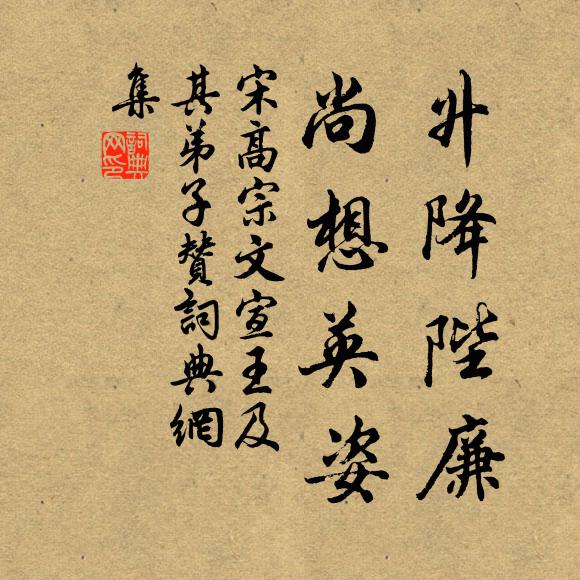 升降陛廉
尚想英姿
宋高宗文宣王及
其弟子贊詞典網
集
詞典
网印